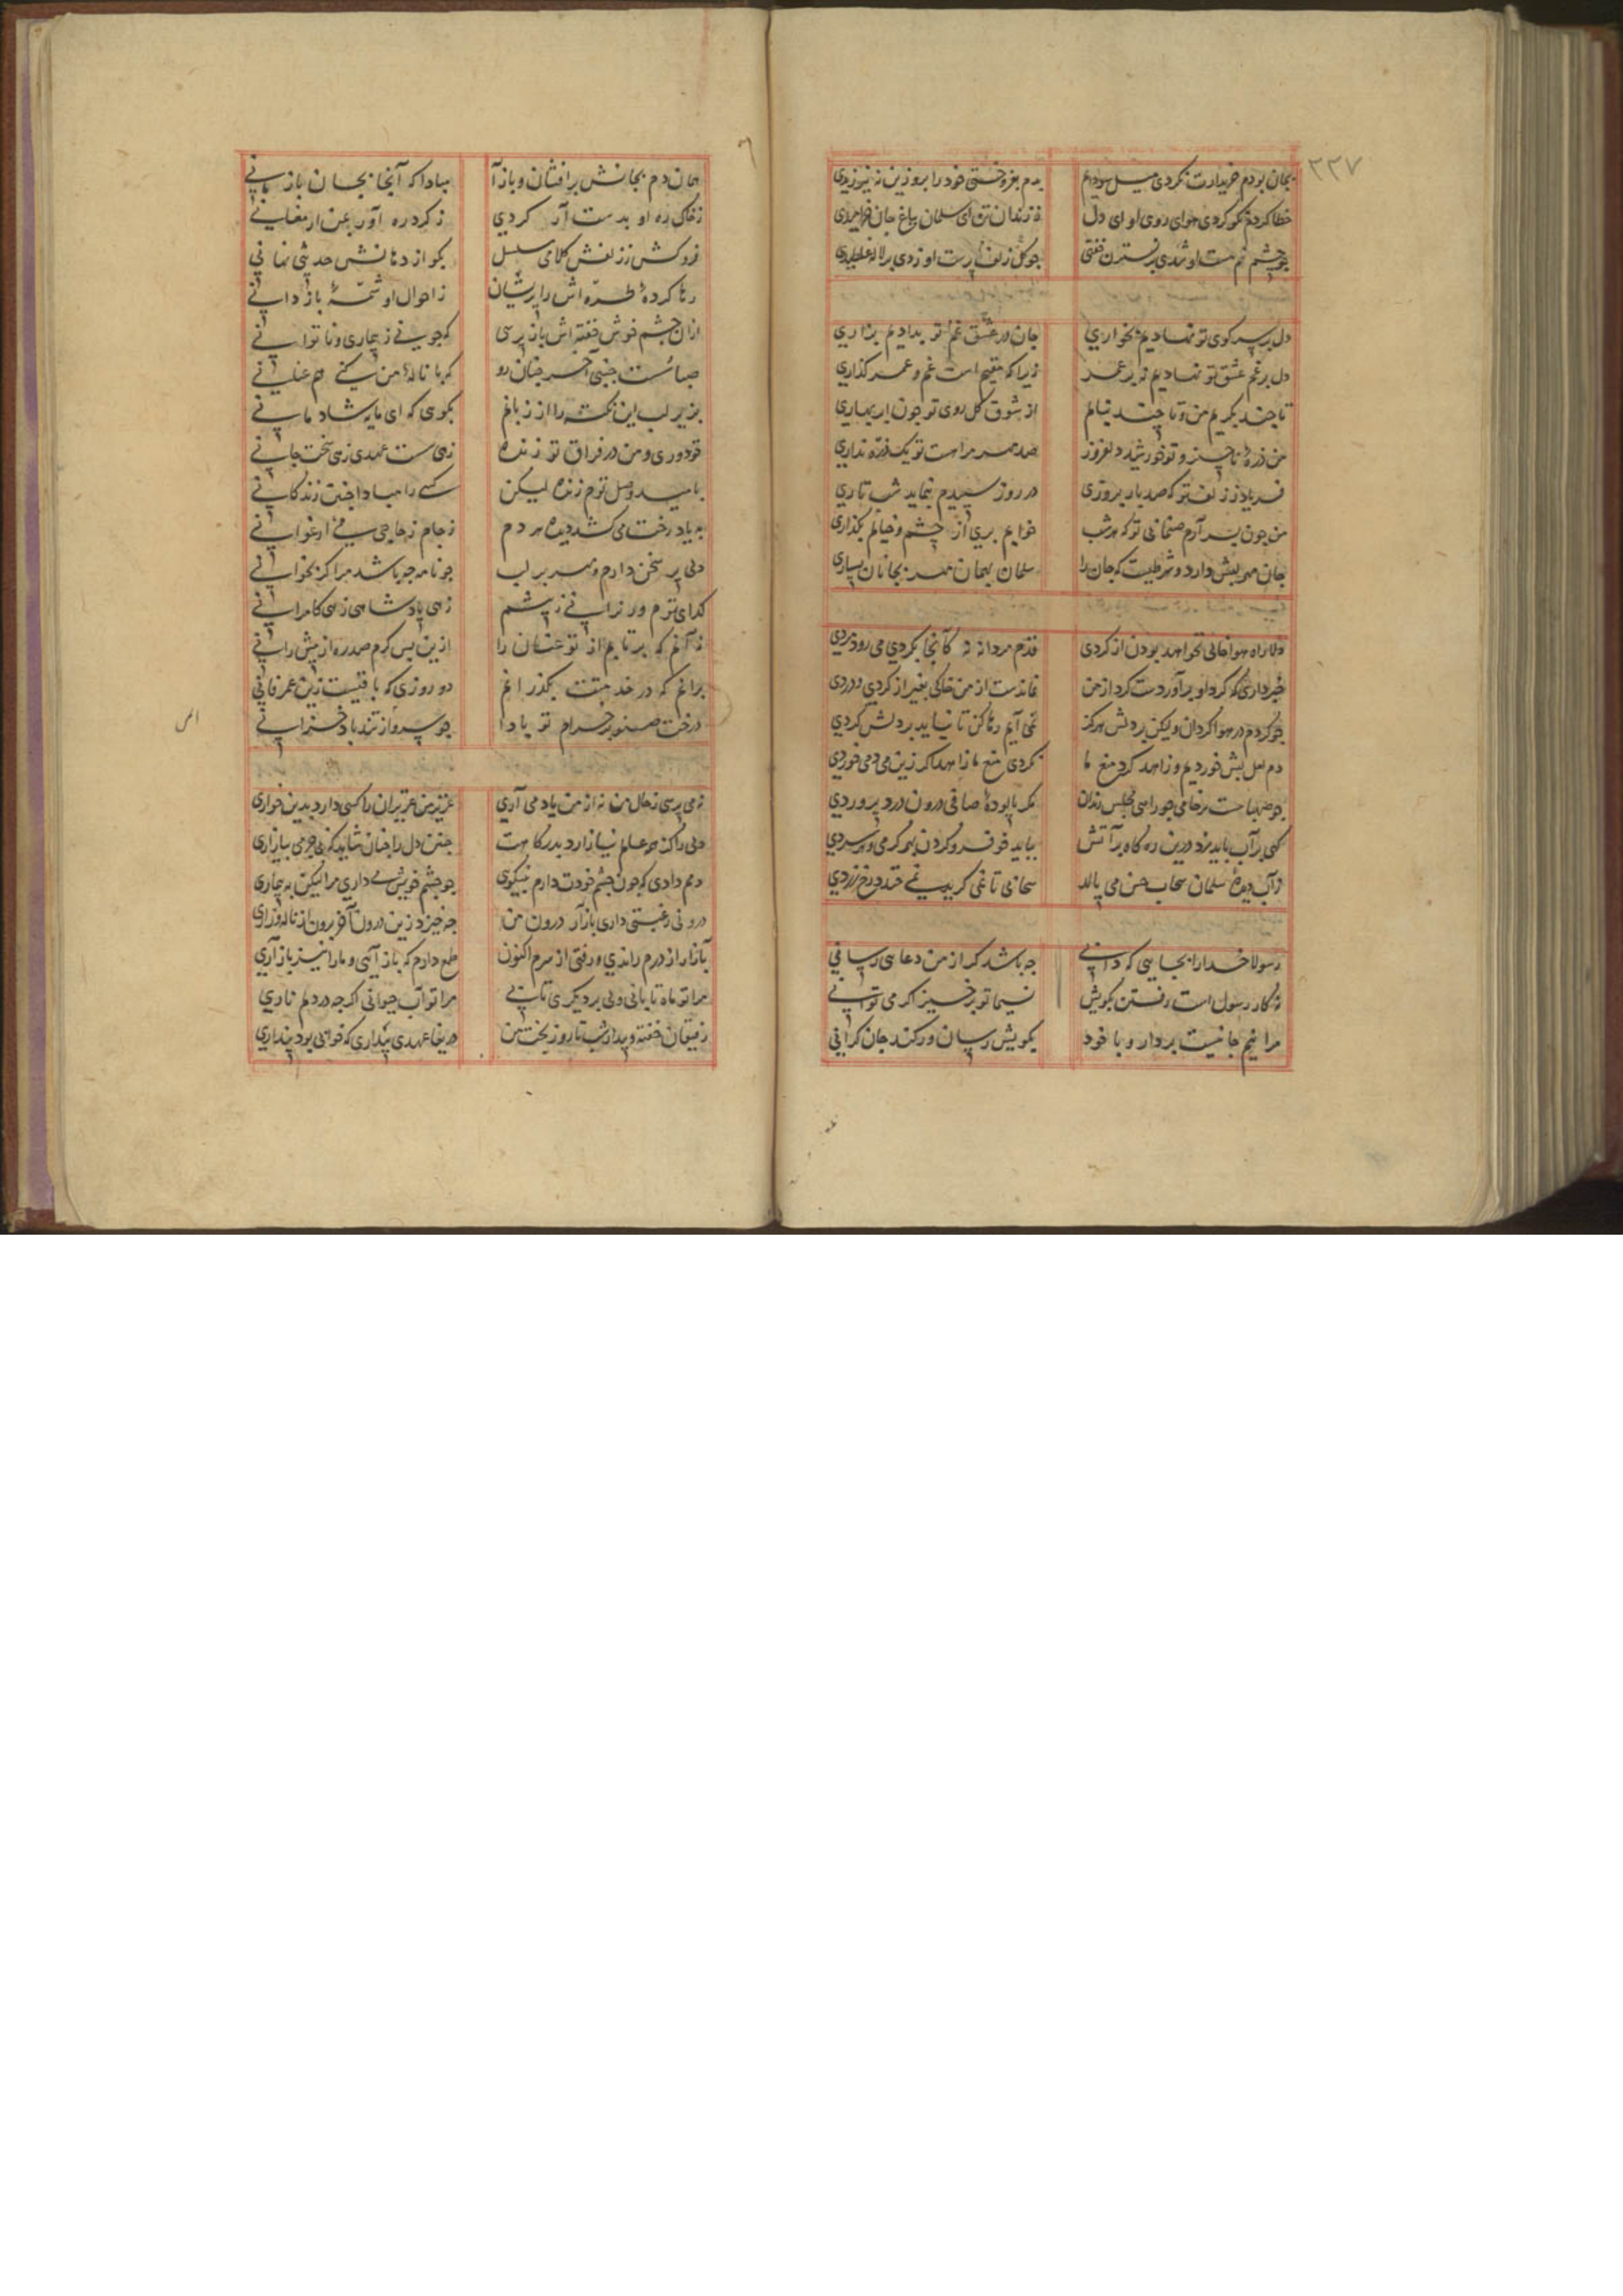 ٢٢٧
بجان بودم خریدارت نکردی میل سودایم بدم بفروختی خود را بروزین نیز نیرزیدی
خطا کردم نکو کردی هوای روی او ای دل ز زندان تن ای سلمان بباغ جان خرامیدی
چو چشم نیم مست او شدی بر نسترن خفتی چو گل زلف او زدی بر لاله غلطیدی
دل بر سر کوی تو نهادیم بخواری جان در عشق غم تو بدادیم بزاری
دل بر غم عشق تو نهادیم نه بر عمر زیرا که مقیم است غم و عمر گذاری
تا چند بگریم من و تا چند بنالم از شوق گل روی تو چون ابر بهاری
من ذرهٔ ناچیز و تو خورشید دلفروز صد مهر مرا هست تو یک ذره نداری
فریاد ز زلف تو که صد بار بروزی در روز سپیدم بنماید شب تاری
من چون بسر آرم تو که هر شب خوابم بری از چشم و خیالم بگذاری
جان مهر لبش دارد و شرطیست که جان را سلمان بهمان مهر بجانان بسپاری
دلا راه هوا خالی نخواهد بودن از گردی قدم مردانه نه کانجا بگردی می رود مردی
خبر داری که گرد او برآوردست گرد از من نماندست از من خاکی بغیر از گردی و دردی
چو گردم در هوا گردان ولیکن بر دلش هرگز نمی آیم رها کن تا نیاید بر دلش گردی
دم لعل لبش خوردیم و زاهد کرد منع ما نکردی منع ما زاهد اگر زین می دمی خوردی
چو صهبا مجلس رندان مگر پالودهٔ صافی درون درد پروردی
گهی بر آب باید زد درین ره گاه بر آتش بباید خو فرو کردن بهر گرمی و هر سردی
ز آب دیدهٔ سلمان سحاب حسن می بالد
رسولا خدا را بجایی که دانی چه باشد گر از من دعایی رسانی
نه کار رسول است رفتن بکویش نسیما تو برخیز اگر می توانی
مرا نیم جانیست بردار و با خود بکویش رسان ور کند جان گرانی
همان دم بجانش برافشان و بازآ مبادا که آنجا بجان باز مانی
ز خاک ره او بدست آر گردی ز گرد ره آور بمن ارمغانی
فروکش ز زلفش کلامی مسلسل بگو از دهانش حدیثی نهانی
رها کردهٔ طره اش را پریشان ز احوال او شمهٔ باز دانی
از آن چشم خوش خفته اش باز پرسی که چونی ز بیماری و ناتوانی
صبا چنان رو که با نالهٔ من کنی هم عنانی
بزیر لب این نکته را از زبانم بگوی که ای مایه شادمانی
تو دوری و من در فراق تو زنده زهی سست عهدی زهی سخت جانی
بامید وصل توم زنده لیکن کسی را مبادا چنین زندگانی
به یاد رخت می کشد دیده هر دم ز جام زجاجی می ارغوانی
دلی پر سخن دارم و مهر بر لب چو نامه چه باشد مرا گر بخوانی
گدای توم ور برانی ز پیشم زهی پادشاهی زهی کامرانی
نه آنم که برتابم از تو عنان را ازین پس گرم صد ره از پیش رانی
برانم که در خدمتت بگذرانم دو روزی که باقیست زین عمر فانی
درخت صنوبر خرام تو بادا چو سرو از تندباد خزانی
نمی پرسی ز حال من نه از من یاد می آری عزیز من عزیزان را کسی دارد بدین خواری
دلی را کز همه عالم نیاز آرد بدرگاهت چنین دل را چنان شاید که بی جرمی بیازاری
دمم دادی که چون چشم خودت دارم بنیکوی چو چشم خویش می داری مرا لیکن به بیماری
درونی رغبتی داری بازآر درون من چه خیزد زین درون آخر برون از ناله و زاری
بآزار از درم راندی و رفتی از سرم اکنون طمع دارم که باز آیی و ما را نیز باز آری
مرا تو ماه تابانی ولی بر دیگری تابی مرا تو آب حیوانی اگر چه در دلم ناری
رفیقان خفته و بیدار شب تا روز بخت من دریغا عهد بیداری که خوابی بود پنداری